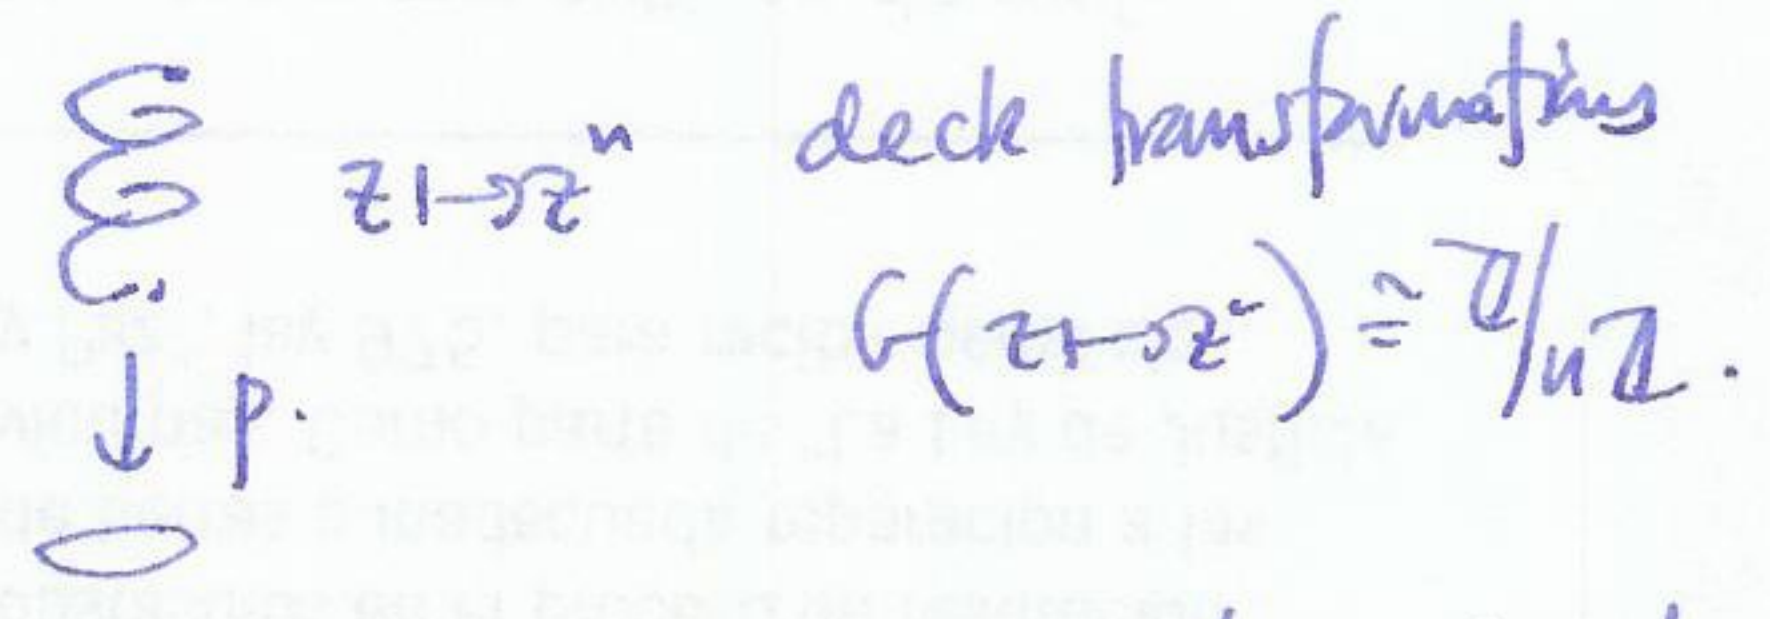 deck transformations
z ↦ z^n
G(z ↦ z^n) ≅ ℤ/nℤ.
↓ p.